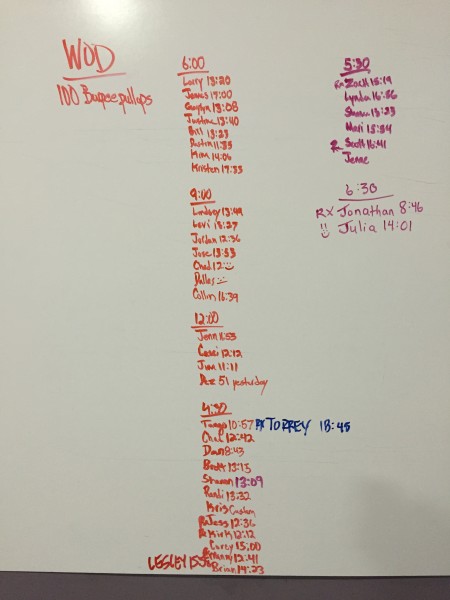 WOD
100 Burpee pullups
6:00
Larry 13:20
James 17:00
13:08
Justine 13:40
Bill 13:23
Dustin 11:35
Kim 14:06
Kristen 17:33
9:00
Lindsey 13:49
Levi 13:27
Jordan 12:36
Jose 13:53
Chad 12
Dallas
Collin 16:39
12:00
Jenn 11:53
Casei 12:12
Jim 11:11
51 yesturday
4:30
Tango 10:57 RX TORREY 18:45
12:42
Dan 8:43
Brett 13:15
Shannon 13:09
Randi 13:32
Kris Custom
Rx Jess 12:36
Rx Kirk 12:12
Corey 15:00
12:41
LESLEY
Brian 14:23
5:30
Rx Zach 15:19
Lynda 16:56
13:23
Mari 15:54
R Scott 16:41
Jenne
6:30
RX Jonathan 8:46
Julia 14:01